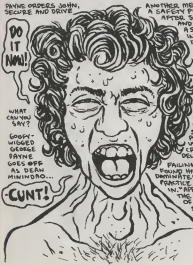 PAYNE ORDERS JOHN,
SECURE AND DRIVE
DO
IT
NOW!
WHAT
CAN YOU
SAY?
GOOFY-
WIGGED
GEORGE
PAYNE
GOES OFF
AS DEAN
MININDAO...
-CUNT!
ANOTHER ME
A SAFETY P
AFTER
AND
FAILIN
FOUND H
DOMINATE
PRACTICE
IN